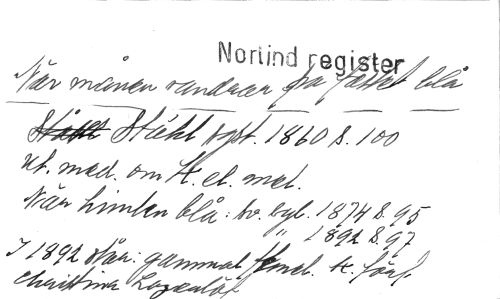 Norlind register
När månen vandrar på fästet blå
Ståhl rgst. 1860 S. 100
ut. med. om H. el. mel.
När himlen blå: tv. bgl. 1874 S. 95
" 1892 S. 97
I 1892 står: gammal mel. H. förf.
Christina Lagerlöf